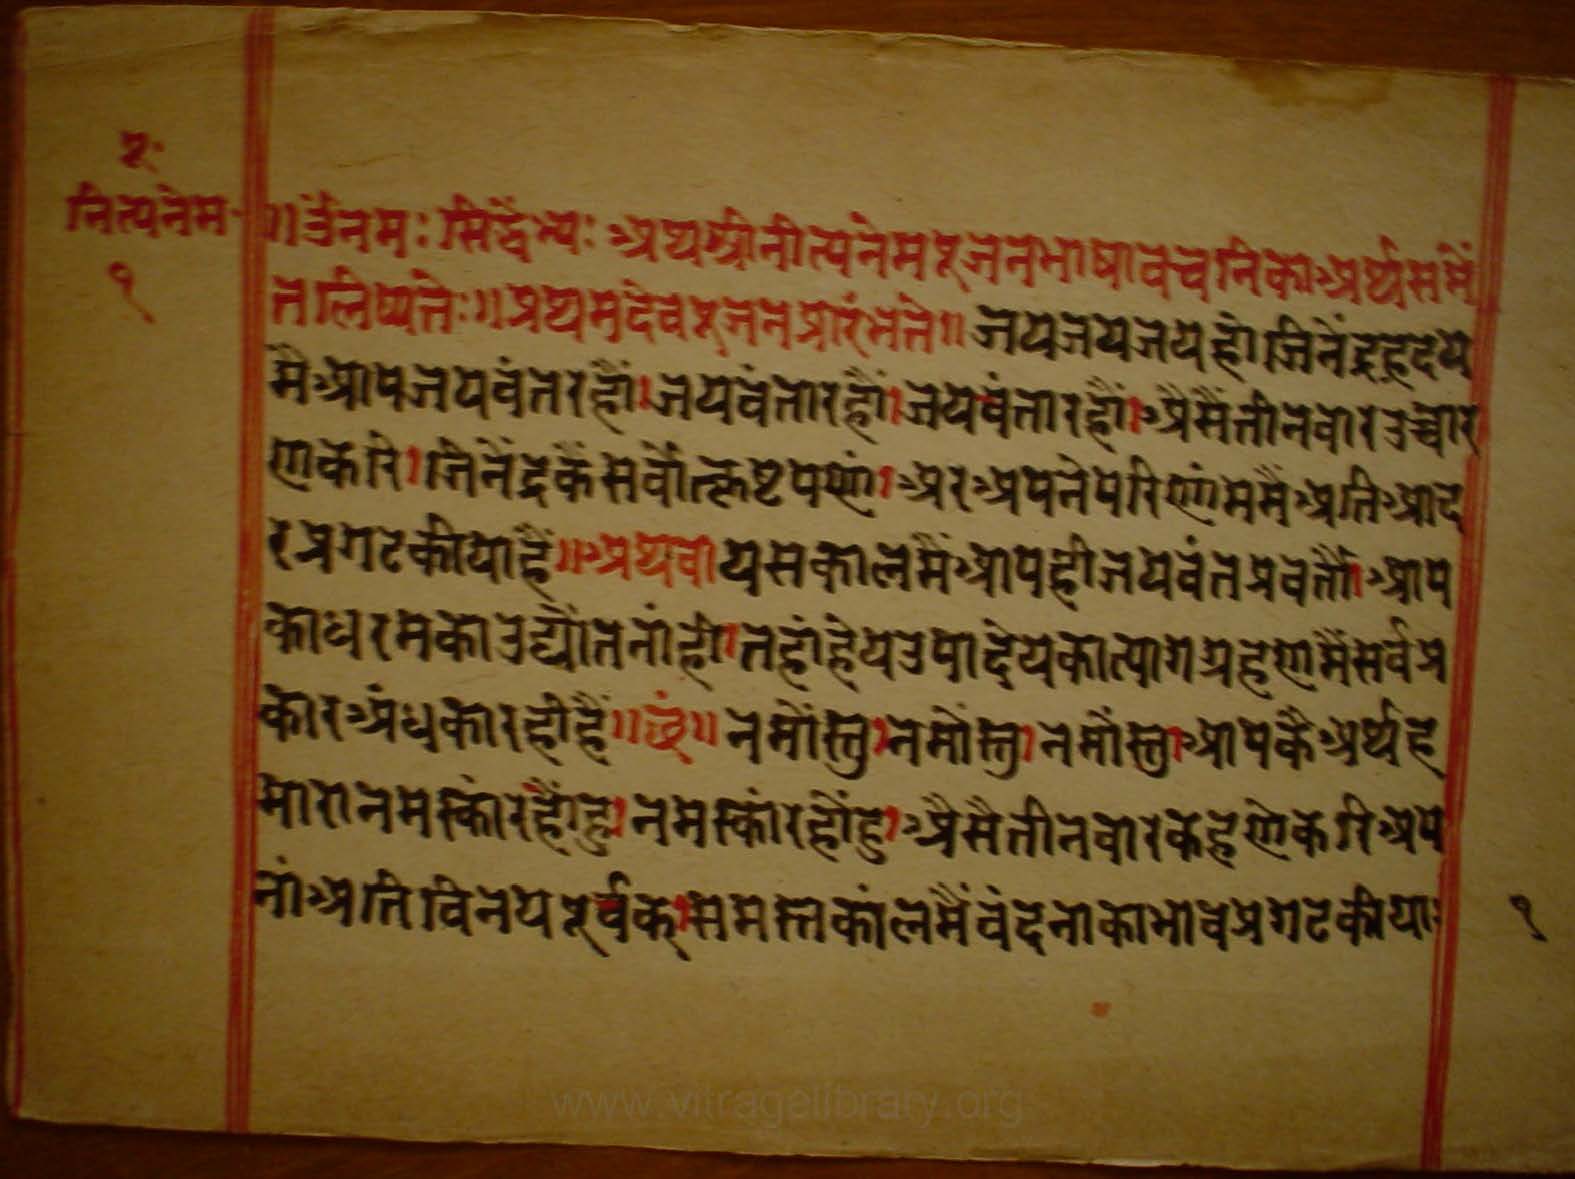 पू॰
नित्यनेम॰
१
॥र्उंनमः सिद्धेंभ्यः अथश्रीनीत्यनेमपूजनभाषावचनिकाअर्थसमें
तलिष्यतेः॥प्रथमदेवपूजनप्रारंभते॥ जयजयजयहो जिनेंद्रहृदय
मैआपजयवंतरहौं।जयवंतारहौं।जयवंतारहौं।अैसैंतीनवारउच्चार
णकरि।जिनेंद्रकैंसर्वोत्कृष्टपणां।अरअपनेपरिणांममैंअतिआद
रप्रगटकीयाहैं॥अथवायसकालमैंआपहीजयवंतप्रवर्तौ।आप
काधरमकाउद्यौतनांही।तहांहेयउपादेयकात्यागग्रहणमैंसर्वप्र
कारअंधकारहीहैं॥छ॥नमोंस्तु।नमोंस्तु।नमोंस्तु।आपकैअर्थह
मारानमस्कारहौंहु।नमस्कारहौंहु।अैसैतीनवारकहणेकरिअप
नांअतिविनयपूर्वक।समस्तकांलमैंवंदनाकाभावप्रगटकीयाः
१
www.vitragelibrary.org